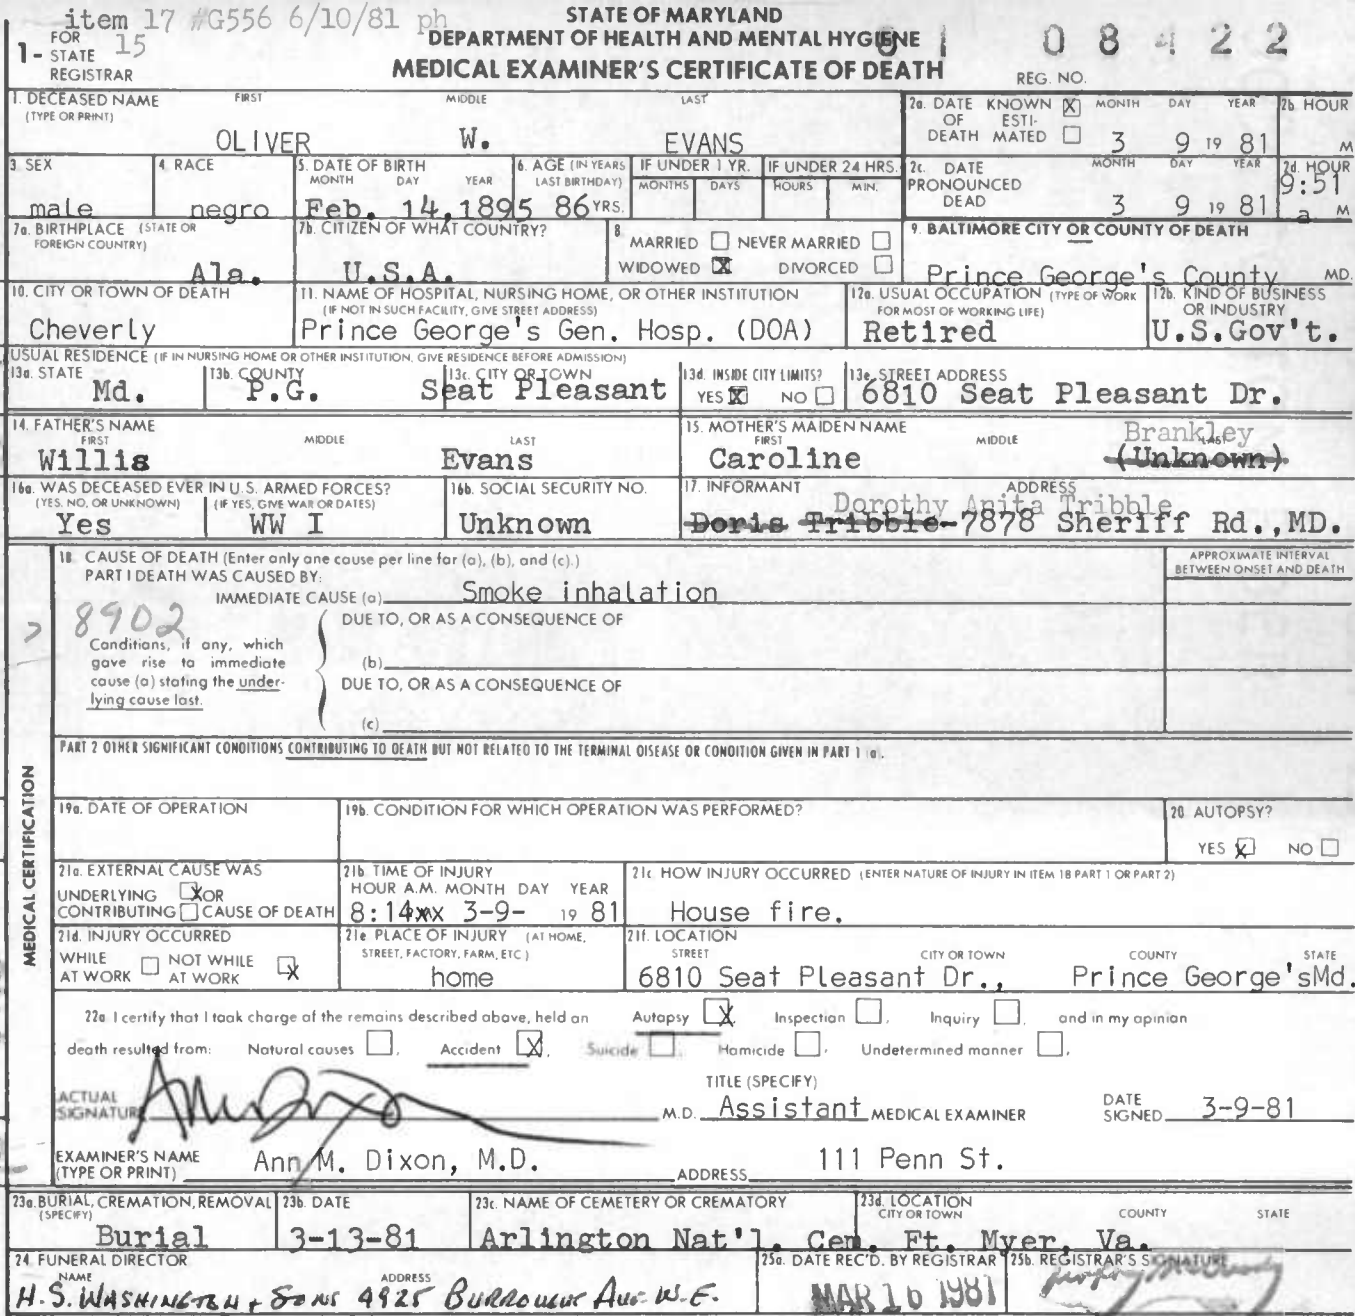 item 17 #G556 6/10/81 ph
15
1- FOR STATE REGISTRAR
STATE OF MARYLAND
DEPARTMENT OF HEALTH AND MENTAL HYGIENE
MEDICAL EXAMINER'S CERTIFICATE OF DEATH
81 08422
REG. NO.
1. DECEASED NAME (TYPE OR PRINT) FIRST MIDDLE LAST
OLIVER W. EVANS
2a. DATE OF DEATH KNOWN [X] ESTIMATED [ ] MONTH DAY YEAR
3 9 19 81
2b. HOUR
M
3. SEX
male
4. RACE
negro
5. DATE OF BIRTH MONTH DAY YEAR
Feb. 14,1895
6. AGE (IN YEARS LAST BIRTHDAY)
86 YRS.
IF UNDER 1 YR. MONTHS DAYS
IF UNDER 24 HRS. HOURS MIN.
2c. DATE PRONOUNCED DEAD MONTH DAY YEAR
3 9 19 81
2d. HOUR
9:51
a M
7a. BIRTHPLACE (STATE OR FOREIGN COUNTRY)
Ala.
7b. CITIZEN OF WHAT COUNTRY?
U.S.A.
8. MARRIED [ ] NEVER MARRIED [ ]
WIDOWED [X] DIVORCED [ ]
9. BALTIMORE CITY OR COUNTY OF DEATH
Prince George's County MD.
10. CITY OR TOWN OF DEATH
Cheverly
11. NAME OF HOSPITAL, NURSING HOME, OR OTHER INSTITUTION
(IF NOT IN SUCH FACILITY, GIVE STREET ADDRESS)
Prince George's Gen. Hosp. (DOA)
12a. USUAL OCCUPATION (TYPE OF WORK FOR MOST OF WORKING LIFE)
Retired
12b. KIND OF BUSINESS OR INDUSTRY
U.S.Gov't.
USUAL RESIDENCE (IF IN NURSING HOME OR OTHER INSTITUTION, GIVE RESIDENCE BEFORE ADMISSION)
13a. STATE
Md.
13b. COUNTY
P.G.
13c. CITY OR TOWN
Seat Pleasant
13d. INSIDE CITY LIMITS?
YES [X] NO [ ]
13e. STREET ADDRESS
6810 Seat Pleasant Dr.
14. FATHER'S NAME FIRST MIDDLE LAST
Willis Evans
15. MOTHER'S MAIDEN NAME FIRST MIDDLE LAST
Brankley
Caroline (Unknown)
16a. WAS DECEASED EVER IN U.S. ARMED FORCES?
(YES, NO, OR UNKNOWN) (IF YES, GIVE WAR OR DATES)
Yes WW I
16b. SOCIAL SECURITY NO.
Unknown
17. INFORMANT ADDRESS
Dorothy Anita Tribble
Doris Tribble-7878 Sheriff Rd.,MD.
18. CAUSE OF DEATH (Enter only one cause per line for (a), (b), and (c).)
PART I DEATH WAS CAUSED BY:
APPROXIMATE INTERVAL BETWEEN ONSET AND DEATH
IMMEDIATE CAUSE (a) Smoke inhalation
8902
DUE TO, OR AS A CONSEQUENCE OF
Conditions, if any, which gave rise to immediate cause (a) stating the underlying cause last.
(b)
DUE TO, OR AS A CONSEQUENCE OF
(c)
PART 2 OTHER SIGNIFICANT CONDITIONS CONTRIBUTING TO DEATH BUT NOT RELATED TO THE TERMINAL DISEASE OR CONDITION GIVEN IN PART 1 (a).
MEDICAL CERTIFICATION
19a. DATE OF OPERATION
19b. CONDITION FOR WHICH OPERATION WAS PERFORMED?
20. AUTOPSY?
YES [X] NO [ ]
21a. EXTERNAL CAUSE WAS
UNDERLYING [X] OR
CONTRIBUTING [ ] CAUSE OF DEATH
21b. TIME OF INJURY
HOUR A.M. MONTH DAY YEAR
8:14xx 3-9- 19 81
21c. HOW INJURY OCCURRED (ENTER NATURE OF INJURY IN ITEM 18 PART 1 OR PART 2)
House fire.
21d. INJURY OCCURRED
WHILE AT WORK [ ] NOT WHILE AT WORK [X]
21e. PLACE OF INJURY (AT HOME, STREET, FACTORY, FARM, ETC.)
home
21f. LOCATION
STREET CITY OR TOWN COUNTY STATE
6810 Seat Pleasant Dr., Prince George'sMd.
22a. I certify that I took charge of the remains described above, held an Autopsy [X], Inspection [ ], Inquiry [ ], and in my opinion
death resulted from: Natural causes [ ], Accident [X], Suicide [ ], Homicide [ ], Undetermined manner [ ],
ACTUAL SIGNATURE Ann Dixon M.D.
TITLE (SPECIFY)
Assistant MEDICAL EXAMINER
DATE SIGNED 3-9-81
EXAMINER'S NAME (TYPE OR PRINT) Ann M. Dixon, M.D.
ADDRESS 111 Penn St.
23a. BURIAL, CREMATION, REMOVAL (SPECIFY)
Burial
23b. DATE
3-13-81
23c. NAME OF CEMETERY OR CREMATORY
Arlington Nat'l. Cem.
23d. LOCATION CITY OR TOWN COUNTY STATE
Ft. Myer, Va.
24. FUNERAL DIRECTOR
NAME ADDRESS
H.S. WASHINGTON + SONS 4925 BURROUGHS AVE N.E.
25a. DATE REC'D. BY REGISTRAR
MAR 16 1981
25b. REGISTRAR'S SIGNATURE